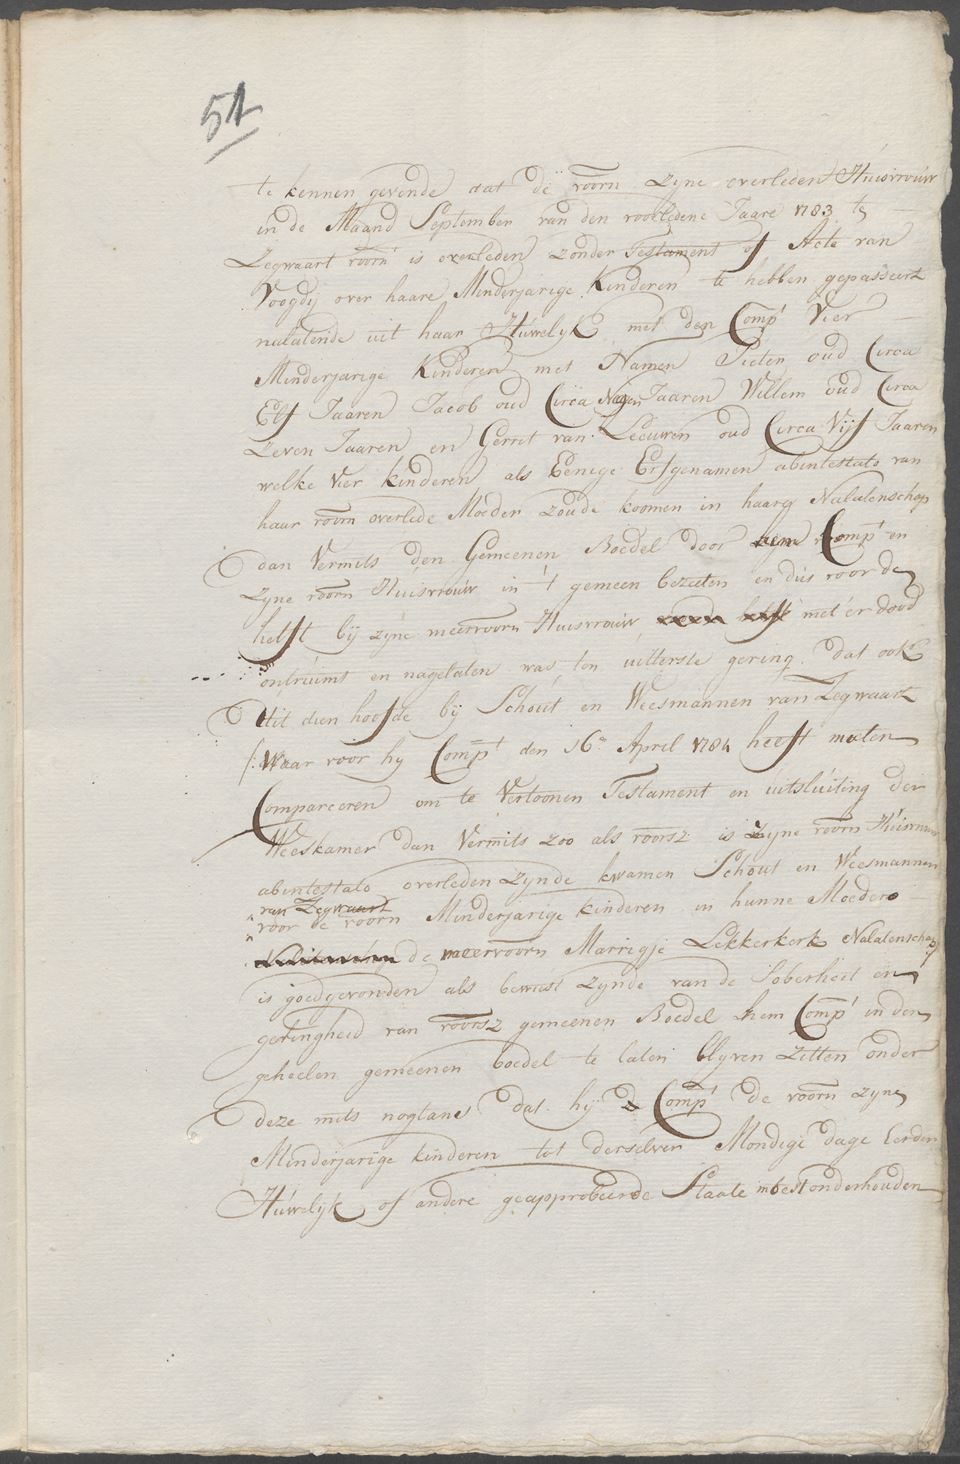 51
te kennen gevende dat de voorn zyne overleden Huisvrouw
in de Maand September van den voorledene Jaare 1783 te
Zegwaart voorn is overleden zonder Testament of Acte van
Voogdij over haare Minderjarige Kinderen te hebben gepasseert
nalatende uit haar Huwelyk met den Compt Vier
Minderjarige Kinderen met Namen Pieter oud Circa
Elf Jaaren Jacob oud Circa Negen Jaaren Willem oud Circa
Zeven Jaaren en Gerrit van Leeuwen oud Circa Vijf Jaaren
welke Vier kinderen als Eenige Erfgenamen abintestato van
haar voorn overlede Moeder zoude koomen in haare Nalatenschap
dan Vermits den Gemeenen Boedel door hem Compt en
zyne voorn Huisvrouw in 't gemeen bezeeten en dus voor de
helft bij zyne meervoorn Huisvrouw met 'er dood
ontruimt en nagelaten was ten uitterste gering dat ook
Uit dien hoofde bij Schout en Weesmannen van Zegwaart
/:Waar voor hy Compt den 16e April 1784 heeft moeten
Compareeren om te Vertoonen Testament en uitsluiting der
Weeskamer dan Vermits zoo als voorsz is Zyne voorn Huisvrouw
abintestato overleden zynde kwamen Schout en Weesmannen
van Zegwaart
voor de voorn Minderjarige kinderen in hunne Moeders
de meervoorn Marrigje Lekkerkerk Nalatenschap
is goedgevonden als bewust zynde van de Soberheit en
geringheid van voorsz gemeenen Boedel hem Compt in den
geheelen gemeenen boedel te laten blyven zitten onder
deze mits noglans dat hij Compt de voorn zyne
Minderjarige kinderen tot derselver Mondige dage Eerder
Huwelyk of andere geapprobeerde Staate moest onderhouden